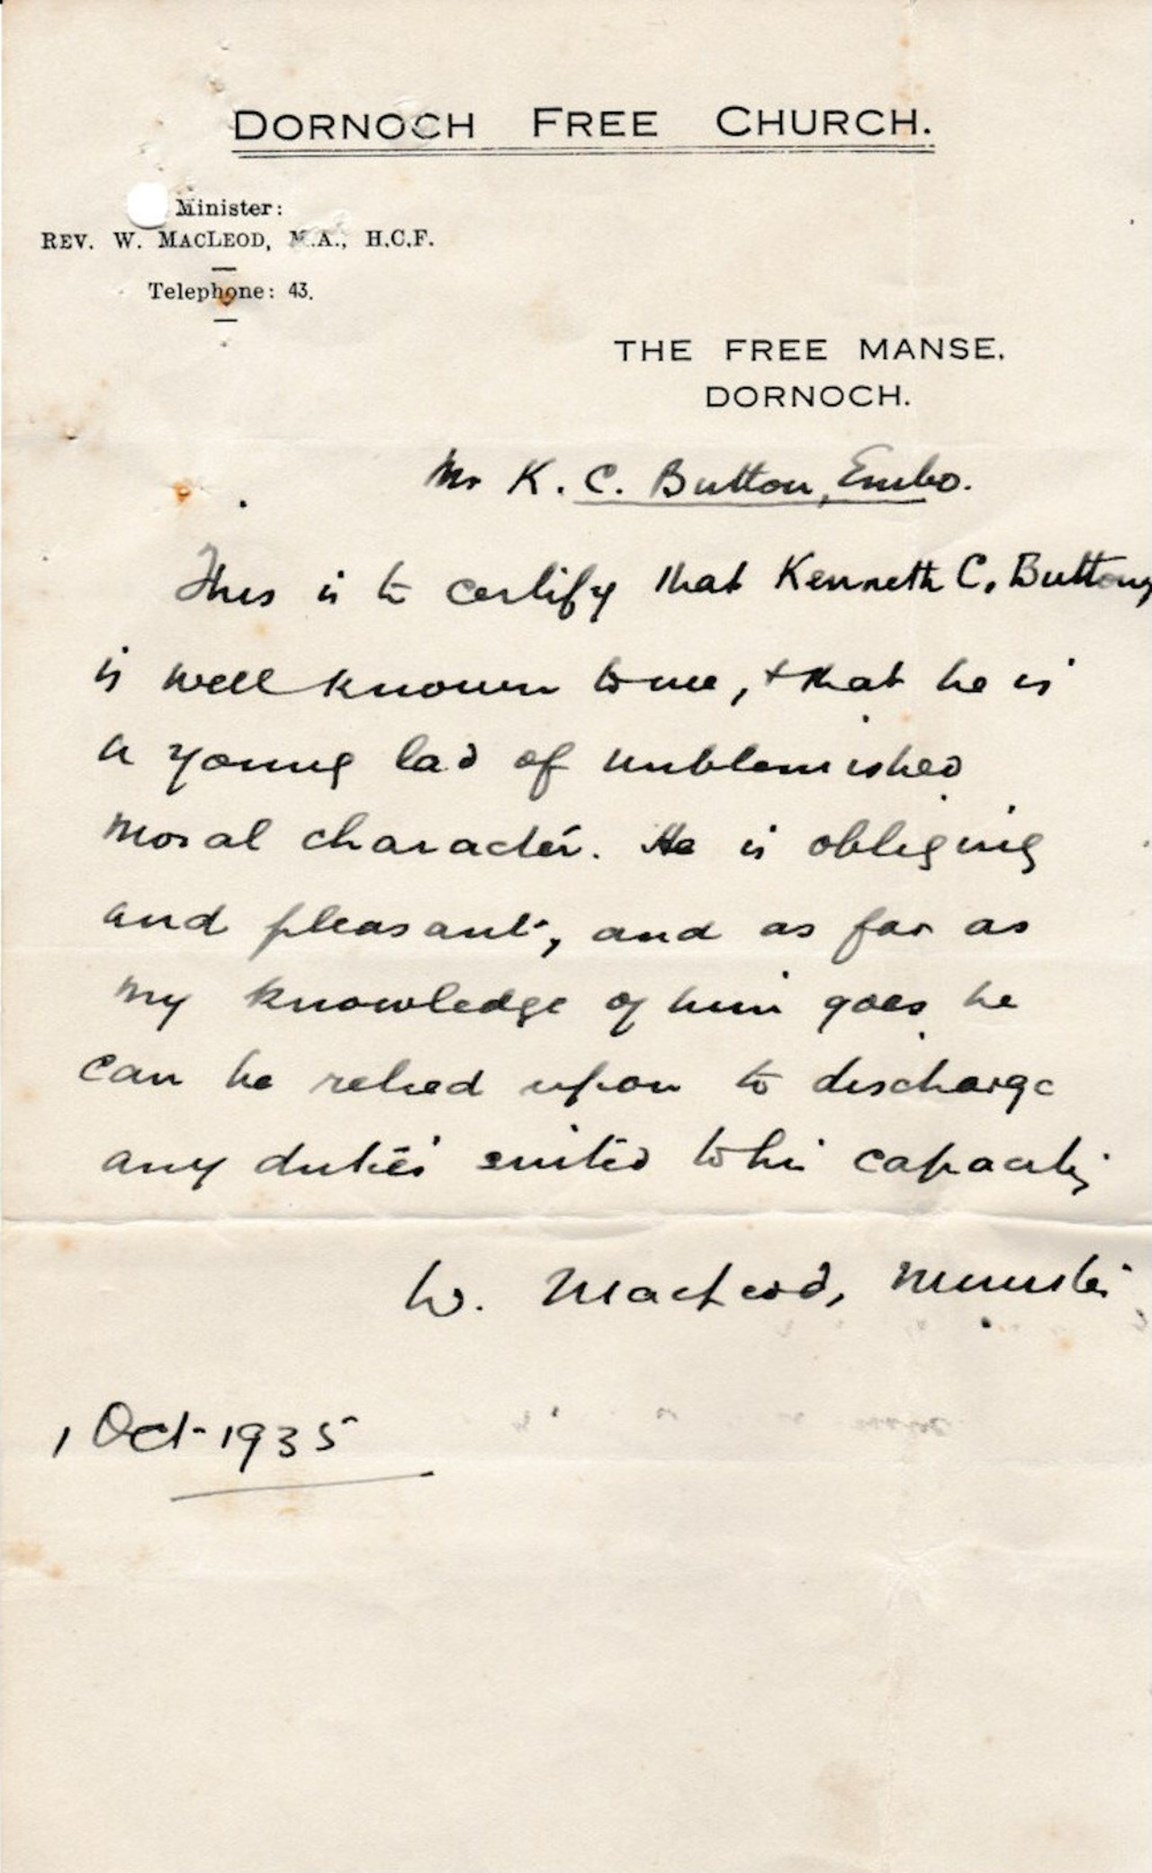 DORNOCH FREE CHURCH.
Minister:
REV. W. MACLEOD, M.A., H.C.F.
Telephone: 43.
THE FREE MANSE.
DORNOCH.
Mr K. C. Button, Embo.
This is to certify that Kenneth C. Button,
is well known to me, + that he is
a young lad of unblemished
moral character. He is obliging
and pleasant, and as far as
my knowledge of him goes he
can be relied upon to discharge
any duties suited to his capacity
W. MacLeod, Minister
1 Oct. 1935